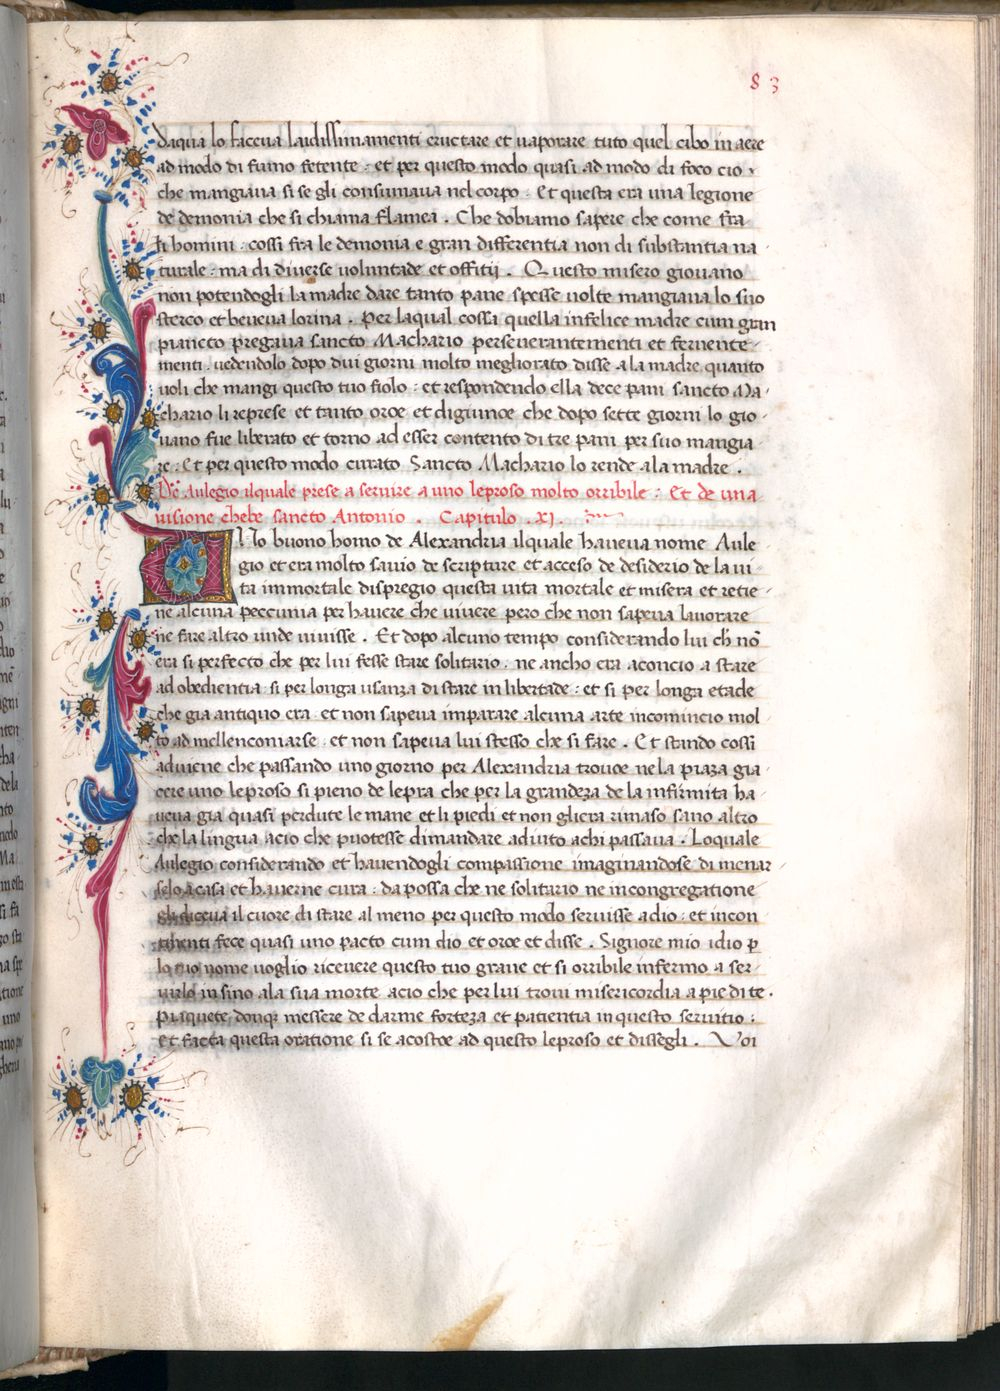 83
daqua lo faceva laidissimamenti eructare et vaporare tuto quel cibo in aere
ad modo di fumo fetente : et per questo modo quasi ad modo di foco cio
che mangiava si se gli consumava nel corpo . Et questa era una legione
de demonia che si chiama flamea . Che dobiamo sapere che come fra
li homini : cossi fra le demonia e gran differentia non di substantia na
turale : ma di diverse voluntade et offitij . Questo misero giovano
non potendogli la madre dare tanto pane spesse volte mangiava lo suo
sterco et beveva lorina . Per laqual cossa quella infelice madre cum gran
piancto pregava sancto Machario perseverantementi et fervente
menti . vedendolo dopo dui giorni molto megliorato disse a la madre quanto
voli che mangi questo tuo fiolo : et respondendo ella dece pani sancto Ma
chario li represe et tanto oroe et digiunoe che dopo sette giorni lo gio
vano fue liberato et torno ad esser contento di tre pani per suo mangia
re : Et per questo modo curato Sancto Machario lo rende ala madre .
De Aulegio ilquale prese a servire a uno leproso molto orribile : Et de una
visione chebe sancto Antonio . Capitulo . XI .
lo buono homo de Alexandria ilquale haveva nome Aule
gio et era molto savio de scripture et acceso de desiderio de la vi
ta immortale dispregio questa vita mortale et misera et retie
ne alcuna peccunia per havere che vivere pero che non sapeva lavorare
ne fare altro unde vivisse . Et dopo alcuno tempo considerando lui ch nō
era si perfecto che per lui fesse stare solitario : ne ancho era aconcio a stare
ad obedientia si per longa usanza di stare in libertade : et si per longa etade
che gia antiquo era et non sapeva imparare alcuna arte incomincio mol
to ad mellenconiarse : et non sapeva lui stesso che si fare . Et stando cossi
adviene che passando uno giorno per Alexandria trovoe nela piaza gia
cere uno leproso si pieno de lepra che per la grandeza de la infirmita ha
veva gia quasi perdute le mane et li piedi et non gliera rimaso sano altro
che la lingua acio che puotesse dimandare adiuto achi passava . Loquale
Aulegio considerando et havendogli compassione imaginandose di menar
selo a casa et haverne cura : da possa che ne solitario ne in congregatione
gli diceva il cuore di stare al meno per questo modo servisse a dio : et incon
tinenti fece quasi uno pacto cum dio et oroe et disse . Signore mio idio p
lo tuo nome voglio ricevere questo tuo grave et si orribile infermo a ser
virlo in sino ala sua morte acio che per lui trovi misericordia a pie di te .
Piaquete donqz messere de darme forteza et patientia in questo servitio :
Et facta questa oratione si se acostoe ad questo leproso et dissegli . Voi